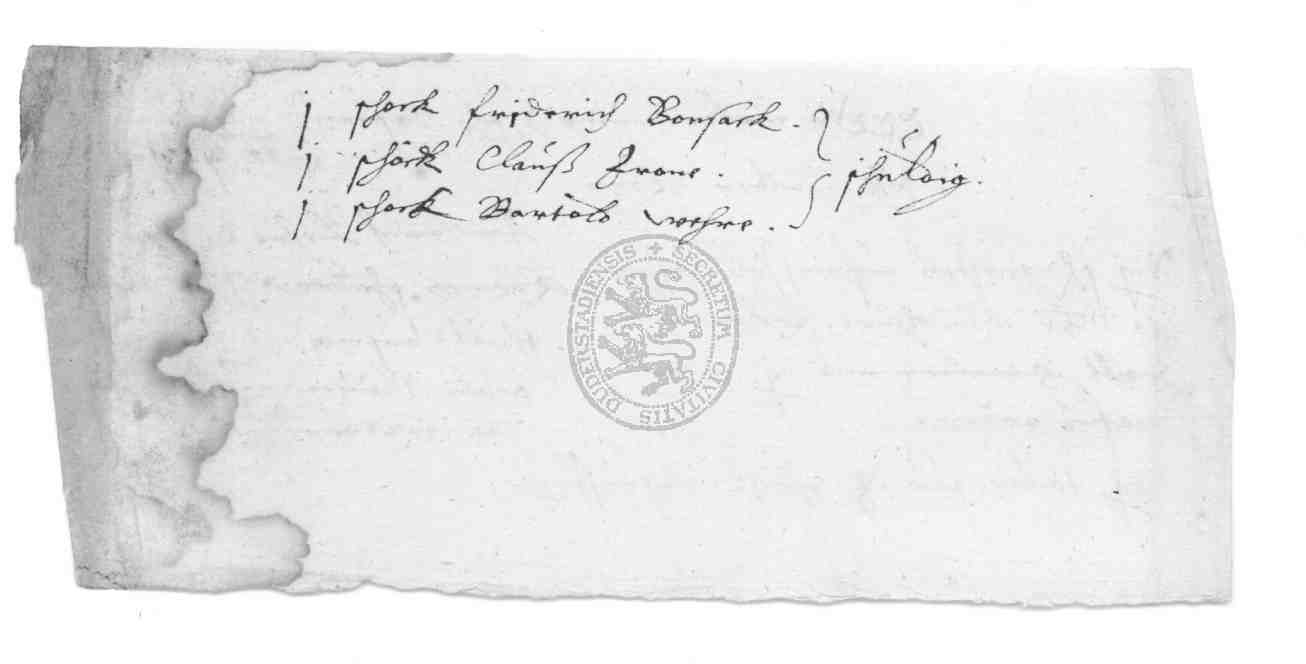 j schock friderich Bonsack . } schuldig.
j schock Clauß Zrone .
j schock Bartold wehre .
SECRETUM CIVITATIS DUDERSTADIENSIS